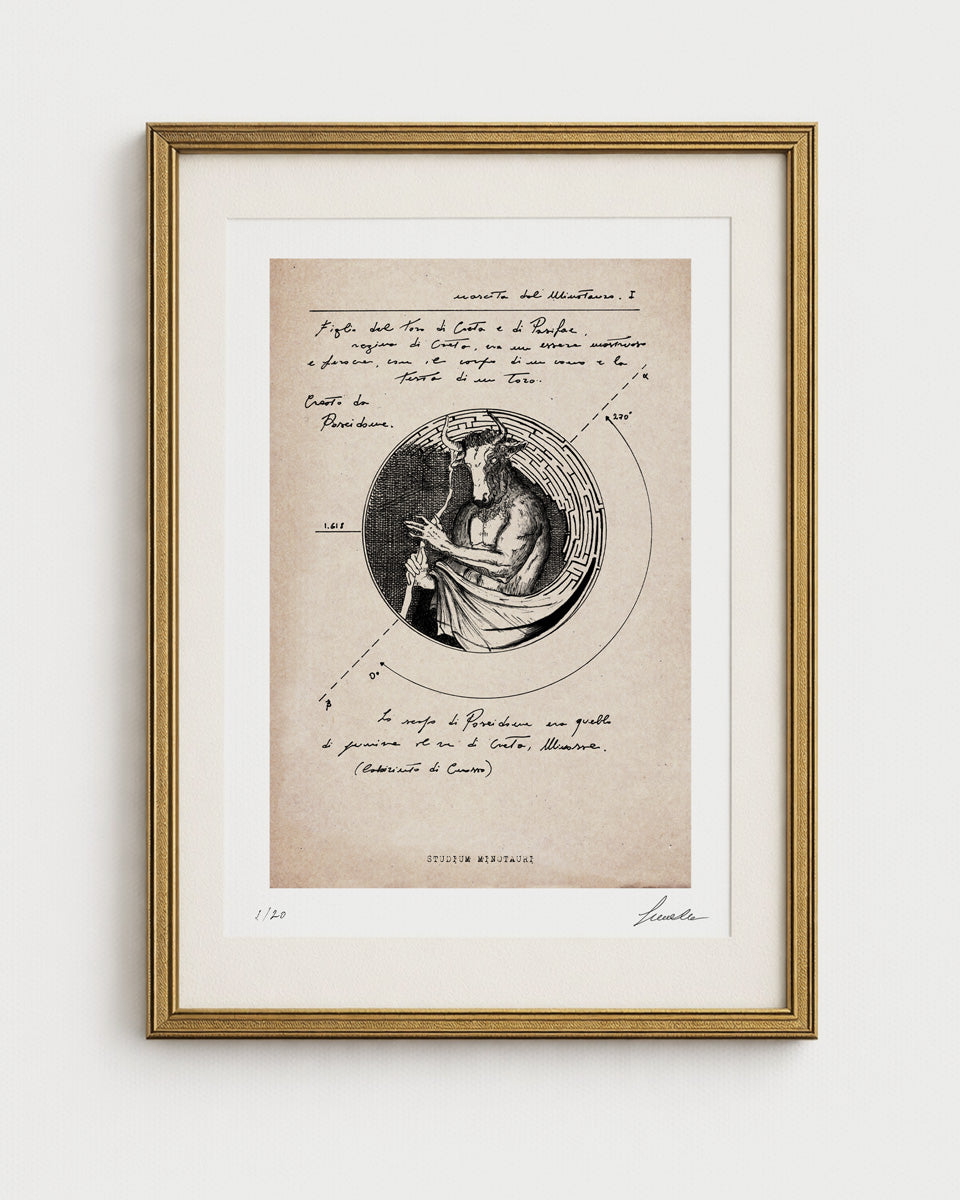 nascita del Minotauro. I
Figlio del toro di Creta e di Pasifae,
regina di Creta, era un essere mostruoso
e feroce, con il corpo di un uomo e la
testa di un toro.
α
270°
Creato da
Poseidone.
1.618
0°
β
Lo scopo di Poseidone era quello
di punire il re di Creta, Minosse.
(labirinto di Cnosso)
STUDIUM MINOTAURI
1/20